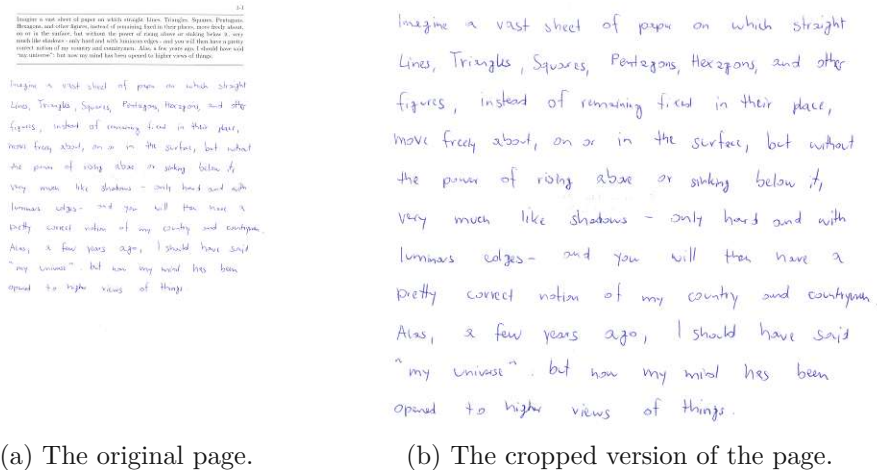 3-1
Imagine a vast sheet of paper on which straight Lines, Triangles, Squares, Pentagons,
Hexagons, and other figures, instead of remaining fixed in their places, move freely about,
on or in the surface, but without the power of rising above or sinking below it, very
much like shadows - only hard and with luminous edges - and you will then have a pretty
correct notion of my country and countrymen. Alas, a few years ago, I should have said
"my universe": but now my mind has been opened to higher views of things.
Imagine a vast sheet of paper on which straight
Lines, Triangles, Squares, Pentagons, Hexagons, and other
figures, instead of remaining fixed in their place,
move freely about, on or in the surface, but without
the power of rising above or sinking below it,
very much like shadows - only hard and with
luminous edges - and you will then have a
pretty correct notion of my country and countrymen.
Alas, a few years ago, I should have said
"my universe". but now my mind has been
opened to higher views of things.
(a) The original page.
Imagine a vast sheet of paper on which straight
Lines, Triangles, Squares, Pentagons, Hexagons, and other
figures, instead of remaining fixed in their place,
move freely about, on or in the surface, but without
the power of rising above or sinking below it,
very much like shadows - only hard and with
luminous edges - and you will then have a
pretty correct notion of my country and countrymen
Alas, a few years ago, I should have said
"my universe". but now my mind has been
opened to higher views of things.
(b) The cropped version of the page.